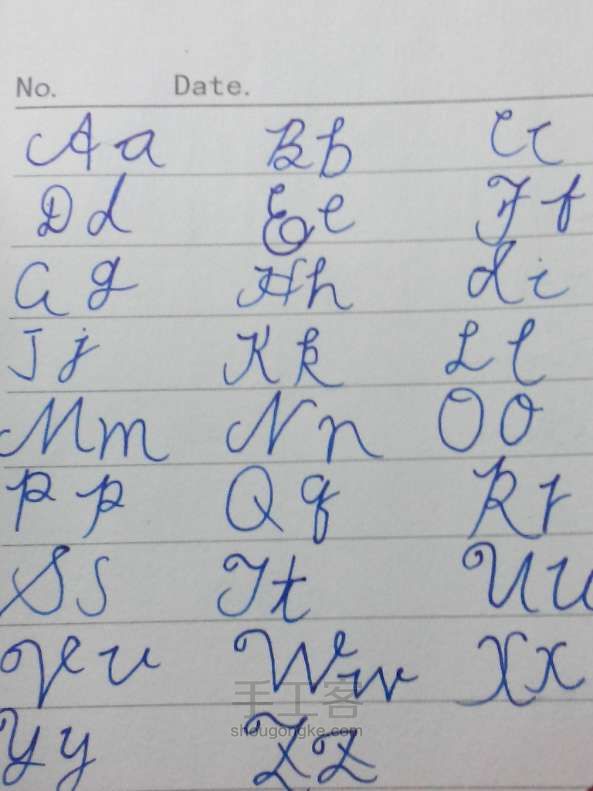 No. Date.
Aa Bb Cc
Dd Ee Ff
Gg Hh Ii
Jj Kk Ll
Mm Nn Oo
Pp Qq Rr
Ss Tt Uu
Vv Ww Xx
手工客
shougongke.com
Yy Zz